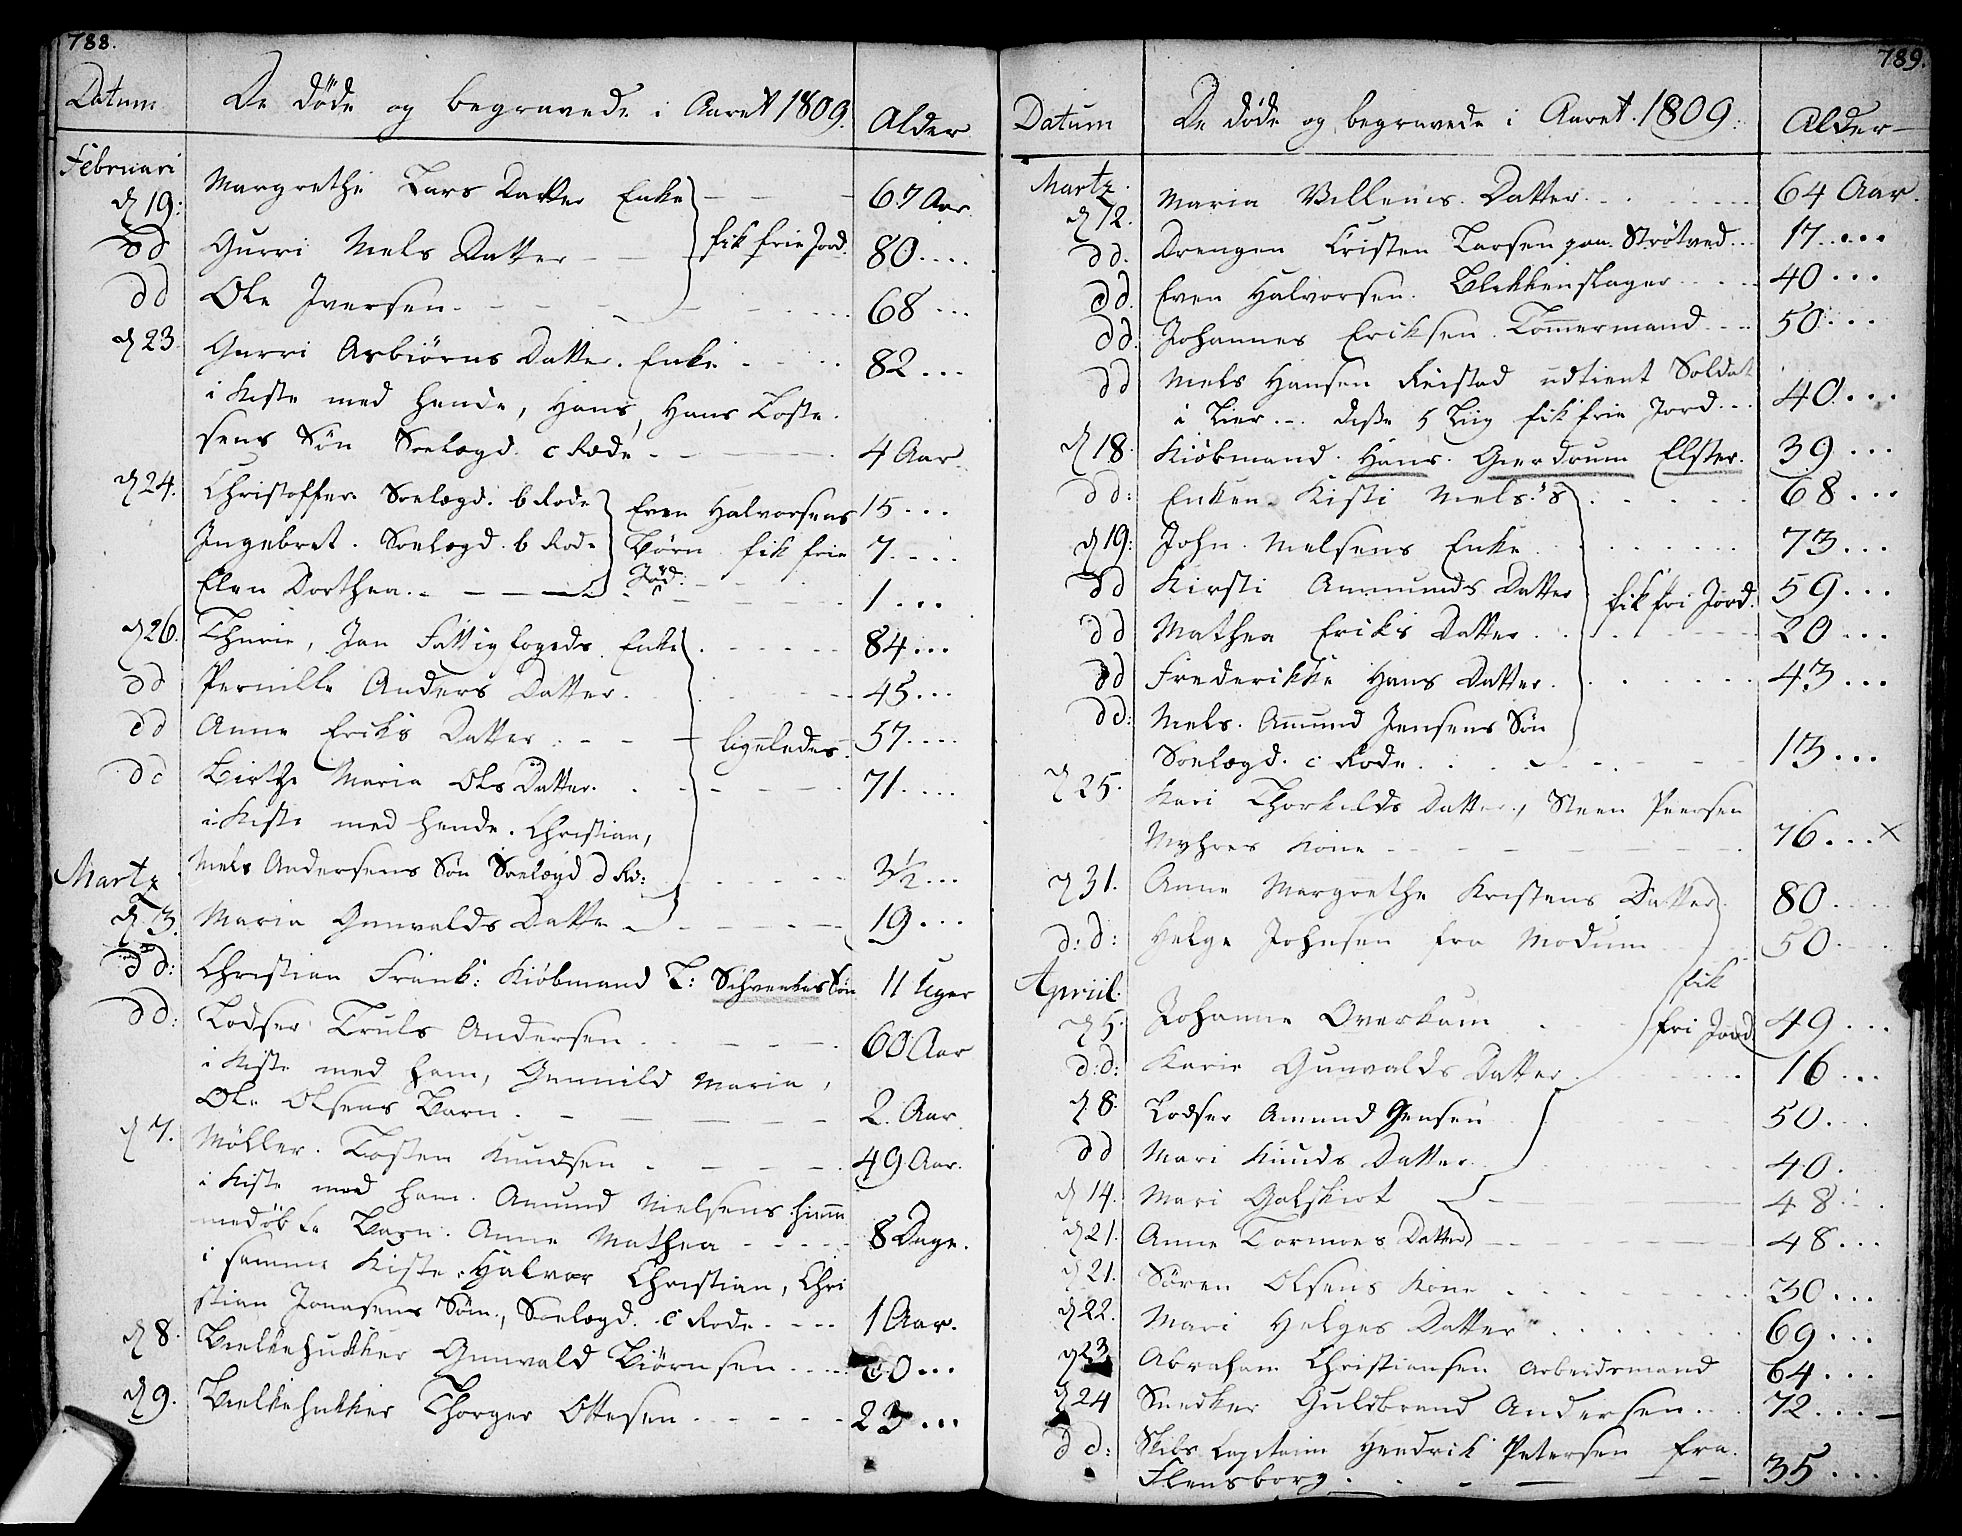 788.
Datum De döde og begravede i Aaret 1809. Alder
Februari
d 19: Margrethe Lars Datter Enke 67 Aar.
dd Gurri Niels Datter fik frie Jord. 80....
dd Ole Iversen 68...
d 23. Gurri Asbiörns Datter. Enke 82...
i Kiste med hende, Hans, Hans Toste-
sens Sön Soelægd. c Rode 4 Aar.
d 24. Christoffer Soelægd. b Rode Even Halvorsens 15...
Ingebret. Soelægd. b Rode Börn fik frie 7...
Elen Dorthea. Jord. 1...
d 26. Thurie, Jan Fattigfogeds Enke 84...
dd Pernille Anders Datter. 45...
dd Anne Eriks Datter ligeledes. 57....
dd Birthe Maria Ols Datter. 71....
i Kiste med hende. Christian,
Niels Andersens Sön Soelægd d Ro: 3½...
Martz
d 3. Maria Gunvalds Datter 19...
dd: Christian Frank: Kiöbmand T: Schwenkes Sön 11 Uger
dd: Lodser Truls Andersen 60 Aar
i Kiste med ham, Gunnild Maria,
Ole Olsens Barn. 2. Aar.
d 7. Möller. Tosten Knudsen 49 Aar.
i Kiste med ham. Amund Nielsens hiemme
nedöbte Barn. Anne Mathea 8 Dage.
i samme Kiste, Halvor Christian, Chri
stian Jonasens Sön, Soelægd. c Rode. 1 Aar.
d 8. Bielkehukker Gunvald Biörnsen 60...
d 9. Bielkehukker Thorger Ottesen 23...
789.
Datum De döde og begravede i Aaret. 1809. Alder
Martz.
d 12. Maria Villems Datter. 64 Aar.
dd. Drengen Cristen Larsen paa Strötved... 17.....
dd. Even Halvorsen. Blikkenslager 40...
dd. Johannes Eriksen Tömmermand 50...
dd Niels Hansen Reistad udtient Soldat
i Lier. disse 5 Liig fik frie Jord 40...
d 18. Kiöbmand. Hans. Gierdrum Elster. 39...
dd: Enken Kisti Niels:s 68...
d 19: John. Nielsens Enke 73...
dd Kirsti Ammunds Datter fik fri Jord. 59...
dd Mathea Eriks Datter 20...
dd Frederikke Hans Datter. 43...
dd: Niels. Amund Jensens Sön
Soelægd. c Rode 13...
d 25. Kari Thorkilds Datter, Steen Peersen
Myhres Kone 76...x
d 31. Anne Margrethe Kristens Datter 80....
d:d: Helge Johnsen fra Modum 50...
Apriil. fik
d 5. Johanne Overkam fri Jord 49...
d:d: Karie Gunvalds Datter 16...
d 8. Lodser Amund Jensen 50...
dd Mari Knuds Datter 40.
d 14. Mari Golskiot 48...
d 21. Anne Tormoes Datter 48...
d 21. Sören Olsens Kone 30...
d 22. Mari Helges Datter 69...
d 23. Abraham Christiansen Arbeidsmand 64...
d 24 Snedker Guldbrand Andersen. 72...
dd: Skibs Capitain Hendrik Petersen fra
Flensborg. 35...